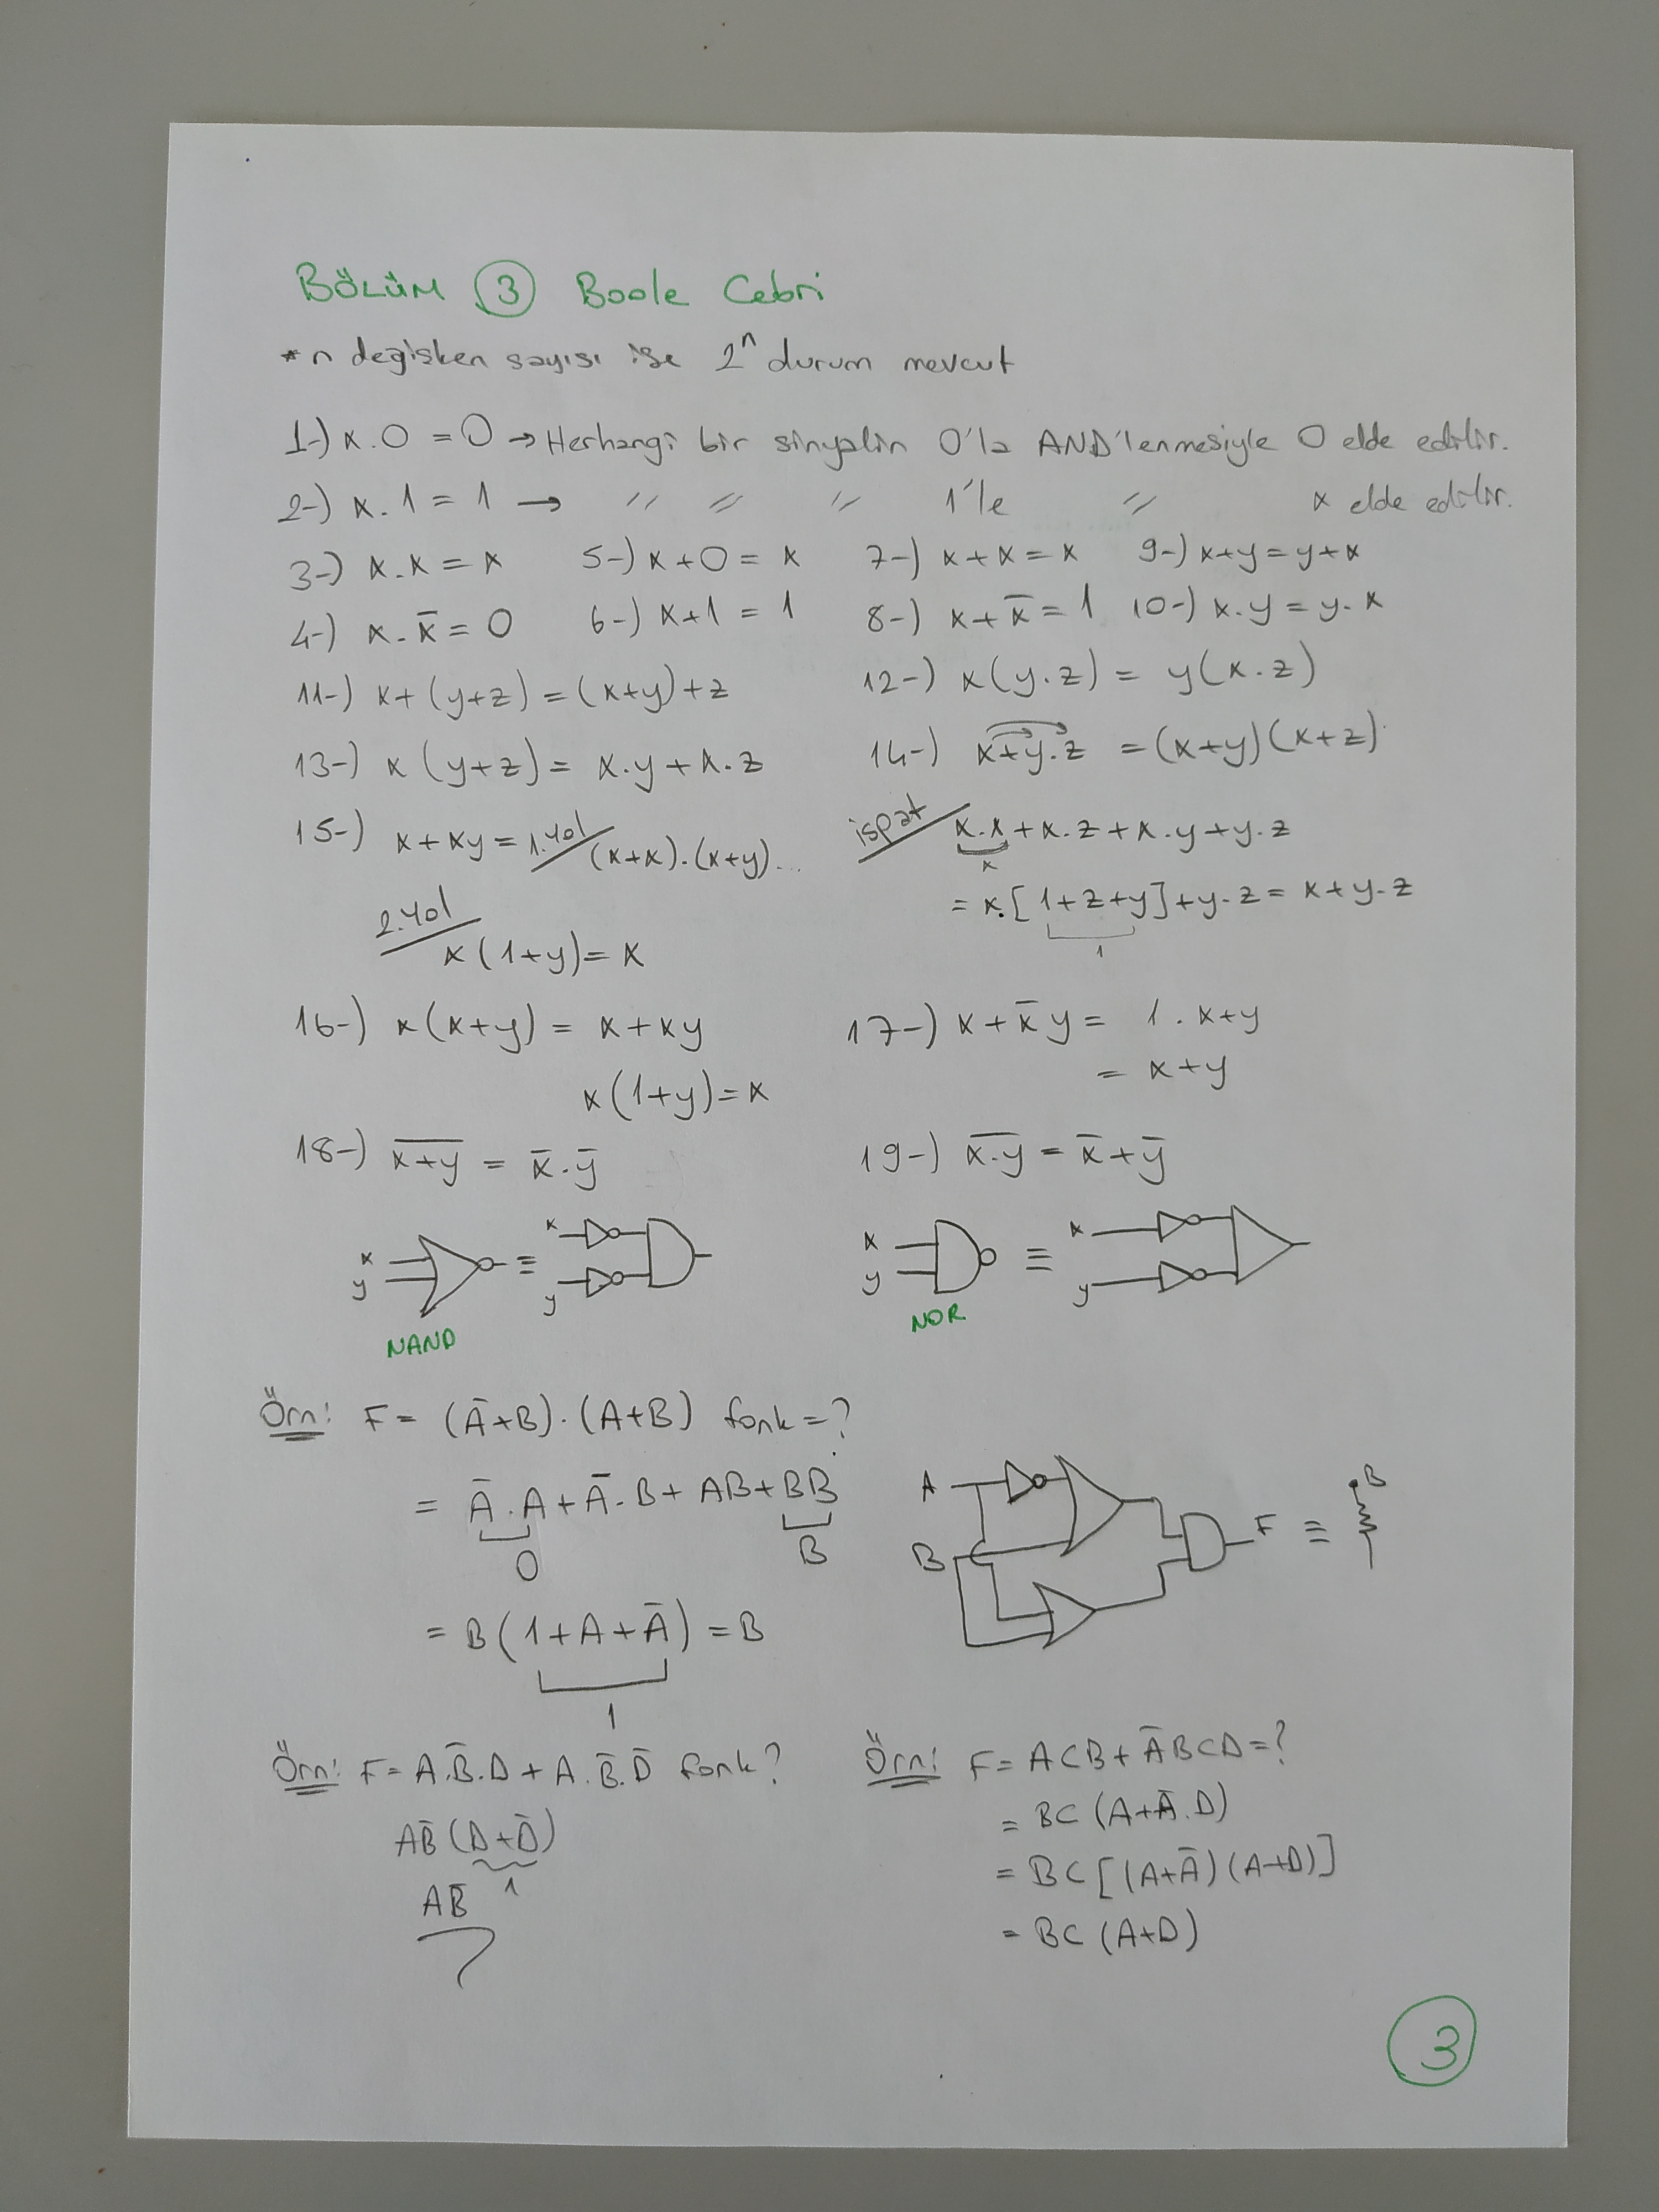 BÖLÜM ③ Boole Cebri
* n değişken sayısı ise 2ⁿ durum mevcut
1-) x.0=0 → Herhangi bir sinyalin 0'la AND'lenmesiyle 0 elde edilir.
2-) x.1=1 → " " " 1'le " x elde edilir.
3-) x.x=x 5-) x+0=x 7-) x+x=x 9-) x+y=y+x
4-) x.x̄=0 6-) x+1=1 8-) x+x̄=1 10-) x.y=y.x
11-) x+(y+z)=(x+y)+z 12-) x(y.z)=y(x.z)
13-) x(y+z)=x.y+x.z 14-) x+y.z=(x+y)(x+z).
15-) x+xy= 1.yol (x+x).(x+y)... ispat x.x+x.z+x.y+y.z
x
2.yol x(1+y)=x =x.[1+z+y]+y.z=x+y.z
1
16-) x(x+y)=x+xy 17-) x+x̄y=1.x+y
x(1+y)=x =x+y
18-) x̅+̅y̅=x̄.ȳ 19-) x̅.̅y̅=x̄+ȳ
x y ≡ x y x y ≡ x y
NAND NOR
Örn: F=(Ā+B).(A+B) fonk=?
=Ā.A+Ā.B+AB+BB
0 B
=B(1+A+Ā)=B
1
A B F ≡ B
Örn: F=A.B̄.D+A.B̄.D̄ fonk?
AB̄(D+D̄)
1
AB̄
Örn: F=ACB+ĀBCD=?
=BC(A+Ā.D)
=BC[(A+Ā)(A+D)]
=BC(A+D)
③